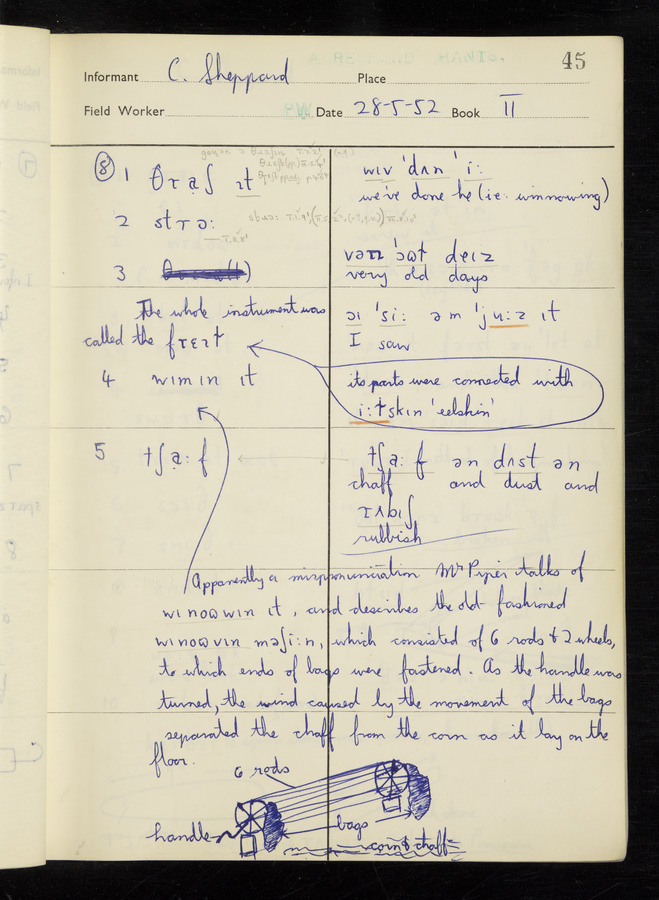 45
Informant C. Sheppard Place
Field Worker Date 28-5-52 Book II
⑧ 1 θɾa̤ʃ ɪt
wɪv 'dʌn 'i:
we've done he (i.e. winnowing)
2 stɾɔ:
3
vəɾɪ 'ɔɷt deɪz
very old days
The whole instrument was
called the fɾɛɪɫ
ɔɪ 'si: əm 'ju:z ɪt
I saw
4 wɪmɪn ɪt
its parts were connected with
i:ɫskɪn 'eelskin'
5 tʃa̤: f
tʃa̤: f ən dʌst ən
chaff and dust and
ɾʌbɪʃ
rubbish
Apparently a mispronunciation Mr Piper talks of
wɪnoɷwɪn ɪt, and describes the old fashioned
wɪnoɷvɪn məʃi:n, which consisted of 6 rods & 2 wheels,
to which ends of bags were fastened. As the handle was
turned, the wind caused by the movement of the bags
separated the chaff from the corn as it lay on the
floor.
6 rods
handle
bags
corn & chaff